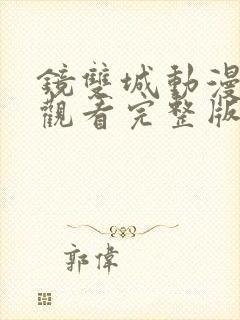 鏡雙城動漫
觀看完整版
郭偉